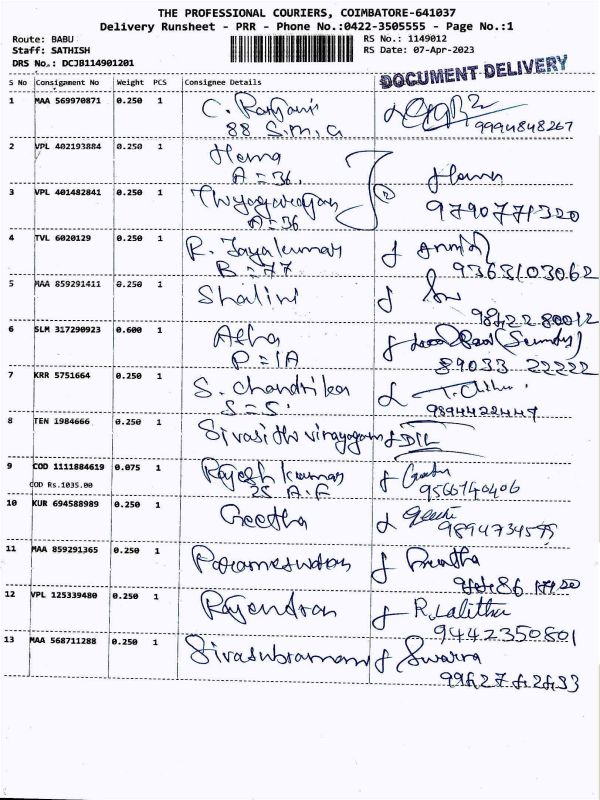 THE PROFESSIONAL COURIERS, COIMBATORE-641037
Delivery Runsheet - PRR - Phone No.:0422-3505555 - Page No.:1
Route: BABU RS No.: 1149012
Staff: SATHISH RS Date: 07-Apr-2023
DRS No.: DCJB114901201
DOCUMENT DELIVERY
S No Consignment No Weight PCS Consignee Details
1 MAA 569970871 0.250 1 C. Ranjani
88 S.M.G 9994848267
2 VPL 402193884 0.250 1 Hema
A = 36.
3 VPL 401482841 0.250 1 Thyagarajan 9790771320
A = 36
4 TVL 6020129 0.250 1 R. Jayakumar
B = 77 9363103062
5 MAA 859291411 0.250 1 Shalini
9842280012
6 SLM 317290923 0.600 1 Atha
P = 1A 89033 22222
7 KRR 5751664 0.250 1 S. Chandrika
S = S. 9894422447
8 TEN 1984666 0.250 1 Sivasithvinayagam
9 COD 1111884619 0.075 1 Rajesh kumar
COD Rs.1035.00 25 A.F 9566740406
10 KUR 694588989 0.250 1 Geetha
11 MAA 859291365 0.250 1 Parameswaran
12 VPL 125339480 0.250 1 Rajendran R. Lalitha
9442350801
13 MAA 568711288 0.250 1 Sivasubramani Swarna